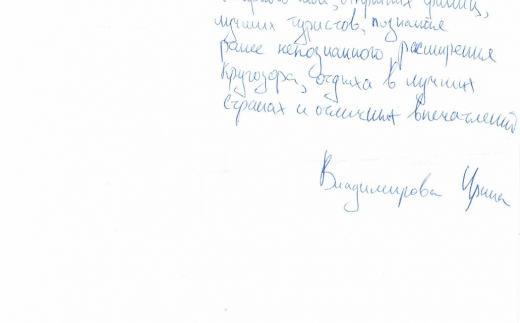 открытых границ,
лучших туристов, познания
ранее непознанного, расширения
кругозора, отдыха в лучших
странах и отличных впечатлений
Владимирова Ирина